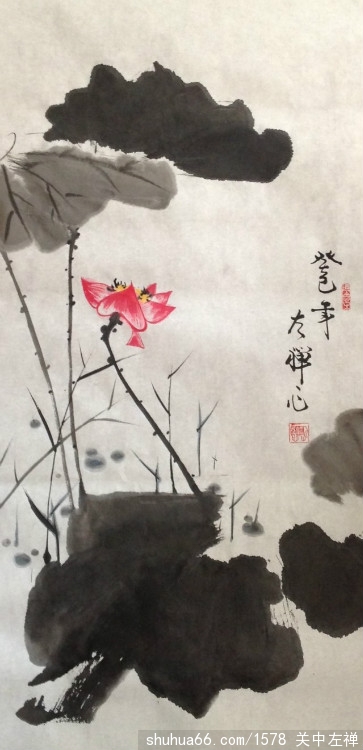 癸巳年
左禅心
shuhua66.com/1578 关中左禅